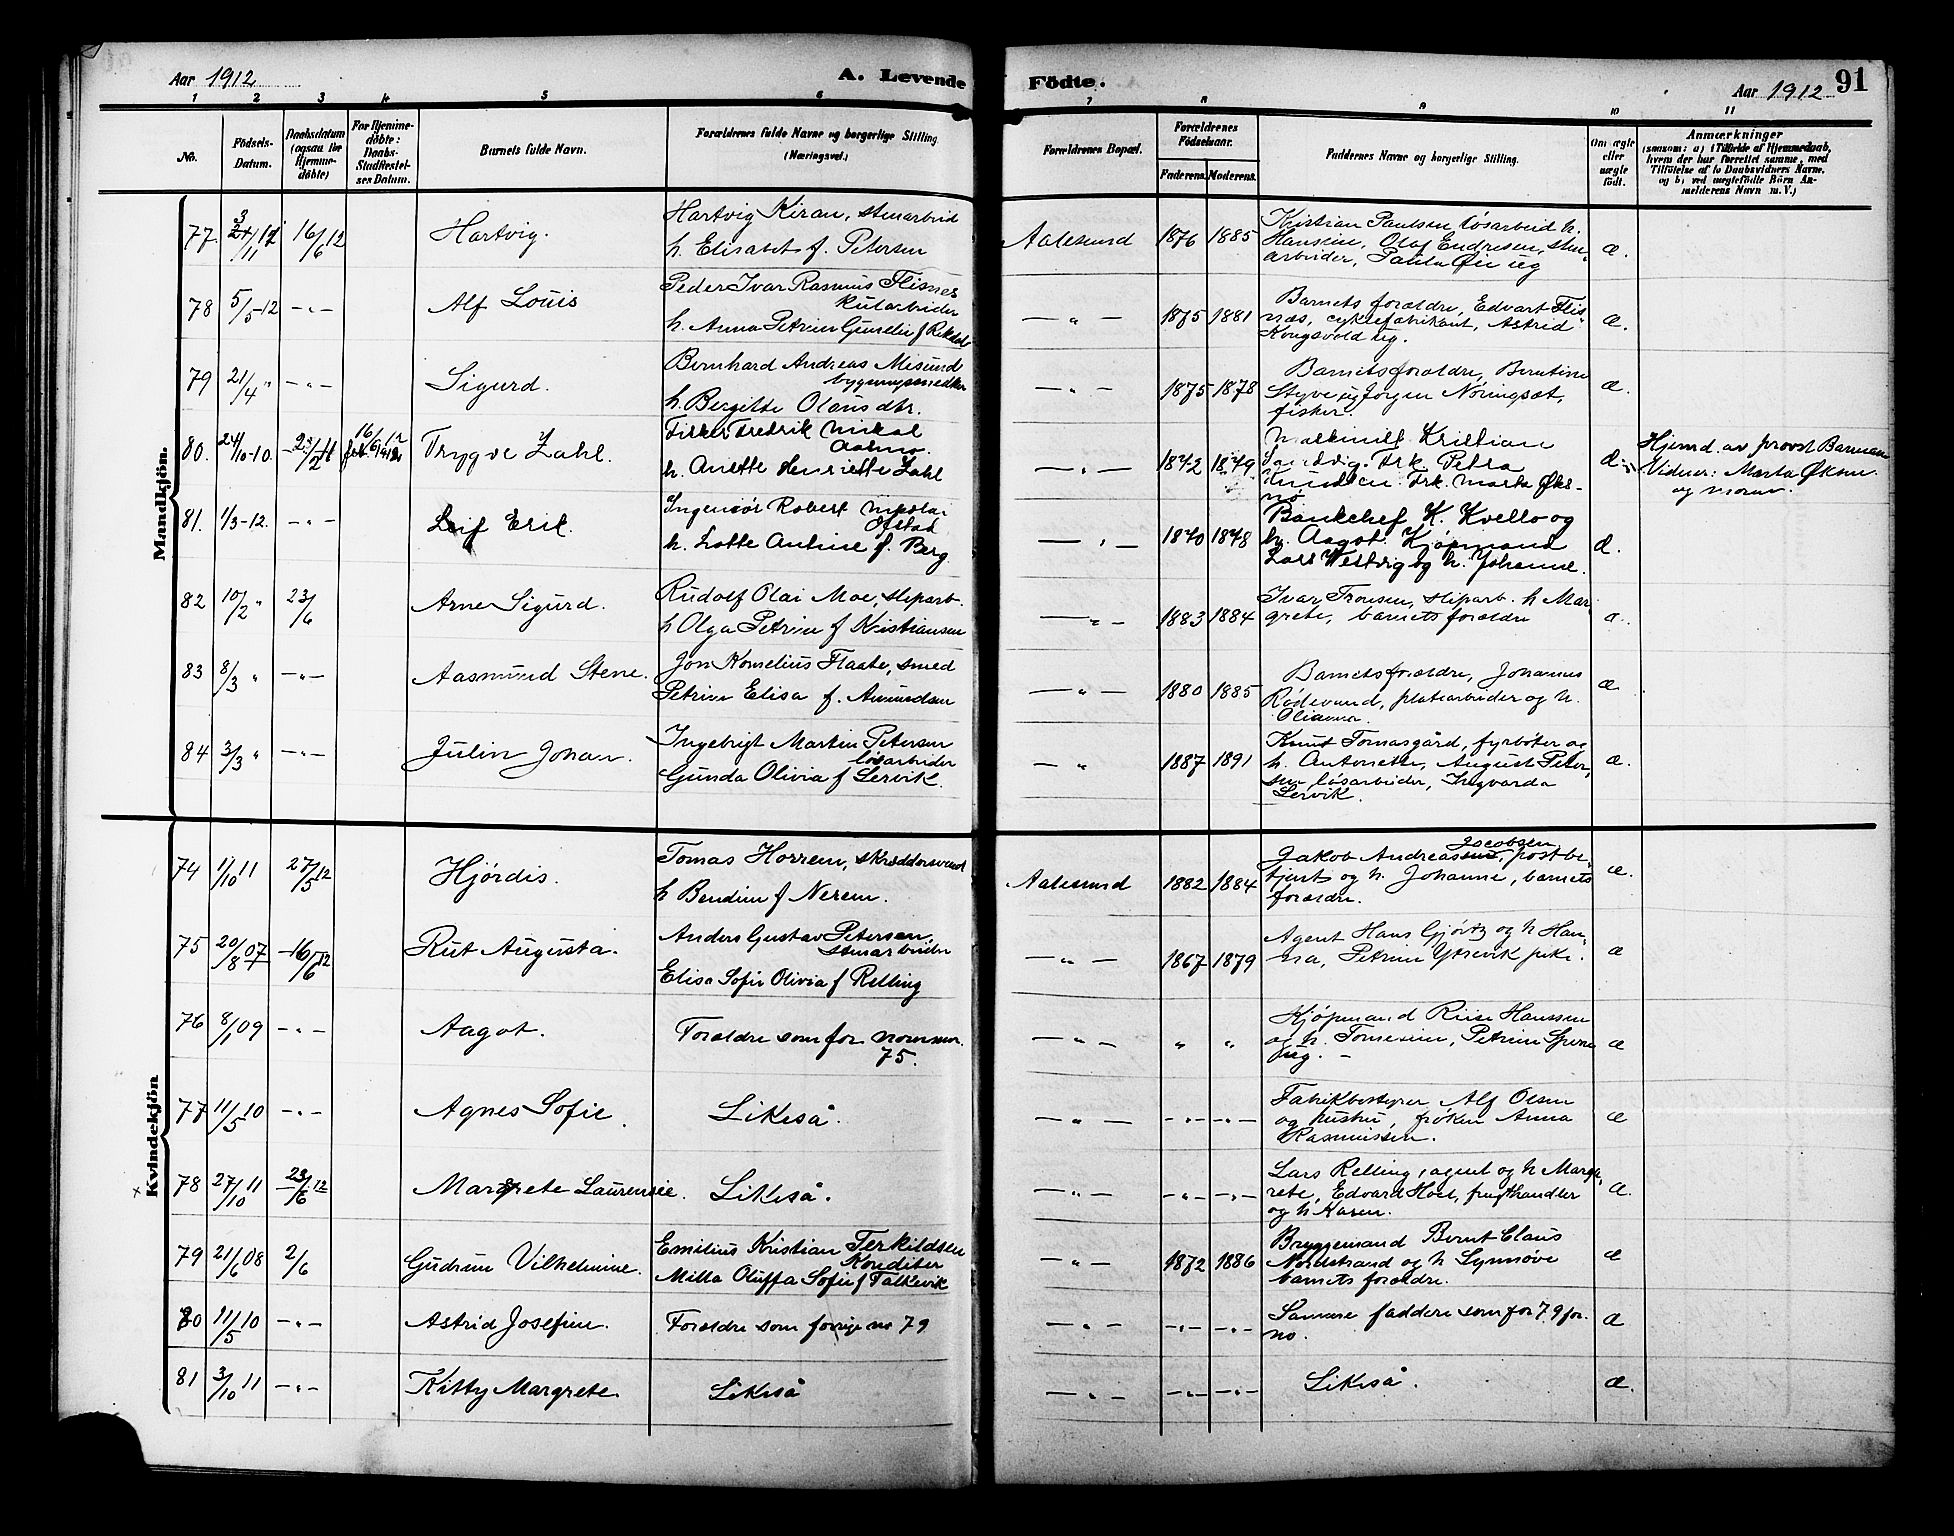 Aar 1912
A. Levende
Födte.
Aar 1912
91
1 2 3 4 5 6 7 8 9 10 11
No.
Födsels-
Datum.
Daabsdatum
(ogsaa for
Hjemme-
döbte)
For Hjemme-
döbte:
Daabs-
Stadfæstel-
ses Datum.
Barnets fulde Navn.
Forældrenes fulde Navne og borgerlige Stilling
(Næringsvei.)
Forældrenes Bopæl.
Forældrenes
Födselsaar.
Faderens. Moderens.
Faddernes Navne og borgerlige Stilling.
Om ægte
eller
uægte
født.
Anmærkninger
(saasom: a) (Tilfælde af Hjemmedaab,
hvem der har forrettet samme, med
Tilföielse af to Daabsvidners Navne,
og b) ved uægtefödte Börn An-
melderens Navn m. V.)
Mandkjön.
77. 3/11 16/6 12 Hartvig.
Hartvig Kiran, stenarbeid
h. Elisabet f. Petersen
Aalesund 1876 1885
Kristian Paulsen løsarbeid h.
Hansine, Olaf Endresen, sten-
arbeider, Paula Øie ug
æ.
78 5/5-12 -"- Alf Louis
Peder Ivar Rasmus Flisnes
kularbeider
h. Anna Petrine Gurelie f Rekdal
-"- 1875 1881
Barnets forældre, Edvart Flis-
næs, cyklefabrikant, Astrid
Kongsvold ug.
æ.
79 21/4 " -"- Sigurd.
Bernhard Andreas Misund
bygningssnedker
h. Bergitte Olausdtr.
-"- 1875 1878
Barnets forældre, Berntine
Styve ug Jørgen Nøringsæt,
fisker.
æ.
80. 24/10-10. 23/2 11 16/6 1912 Trygve Zahl.
Fisker Fredrik Nikol.
h. Anette Henriette Zahl
-"- 1872 1879
Maskinist Kristian
Sandvig. Frk. Petra
Knudsen Frk. Marta Øks-
nø
æ.
Hjemd. av provst Barman
Vidner: Marta Øksnø
og moren.
81. 1/3-12. -"- Leif Erik.
Ingeniør Robert Nikolai
Ofstad
h. Lotte Antine f. Berg
-"- 1870 1878
Bankchef K. Kvello og
h. Aagot. Kjøpmand
Lars Westvig og h. Johanne.
æ.
82 10/2 " 23/6 Arne Sigurd.
Rudolf Olai Moe, sliparb.
h Olga Petrine f Kristiansen
-"- 1883 1884
Ivar Tronsen, sliparb. h Mar-
grete, barnets forældre
æ.
83 8/3 " -"- Aasmund Stene.
Jon Kornelius Flaate, smed
Petrine Elisa f. Amundsen
-"- 1880 1885
Barnets forældre, Johannes
Rødesund, platearbeider og h.
Olianna.
æ
84 3/3 " -"- Julin Johan.
Ingebrigt Martin Petersen
løsarbeider
Gunda Olivia f Lervik.
-"- 1887 1891
Knut Tomasgård, fyrbøter og
h. Antonette, August Peter-
sen løsarbeider, Ingvarda
Lervik.
æ.
Kvindekjön
74 1/10 11 27/5 12 Hjørdis.
Tomas Horrem, skræddersvend
h Bendine f Nerem.
Aalesund 1882 1884
Jacobsen
Jakob Andreassen, postbe-
tjent og h. Johanne, barnets
forældre.
æ.
75 20/8 07 16/6 12 Rut Augusta.
Anders Gustav Petersen,
stenarbeider
Elisa Sofie Olivia f Relling
-"- 1867 1879
Agent Hans Gjørtz og h Han-
na, Petrine Yksevik pike.
æ
76 8/1 09 -"- Aagot.
Forældre som for nommer
75.
-"- " "
Kjøpmand Riise Hanssen
og h. Tomesine, Petrine Sperre
ug. -
æ
77 11/5 10 -"- Agnes Sofie.
Likeså.
-"- -"- -"-
Fabrikbestyrer Alf Olsen
og hustru, frøken Anna
Rasmussen.
æ
x 78 27/10 11 23/6 12 Margrete Laurense.
Likeså.
-"- -"- -"-
Lars Relling, agent og h Marg-
rete, Edvard Hoel, frugthandler
og h Karen.
æ.
79 21/6 08 2/6 Gudrun Vilhelmine.
Emilius Kristian Terkildsen
Konditer
Milla Oluffa Sofie f Falkevik
-"- 1872 1886
Bryggemand Bernt Claus
Nordstrand og h Synnøve
barnets forældre.
æ
80 11/5 10 -"- Astrid Josefine.
Forældre som forrige no 79
-"- -"- -"-
Samme faddere som for 79 for.
no.
æ
81 3/10 11 -"- Kitty Margrete.
Likeså
-"- -"- -"-
Likeså.
æ.